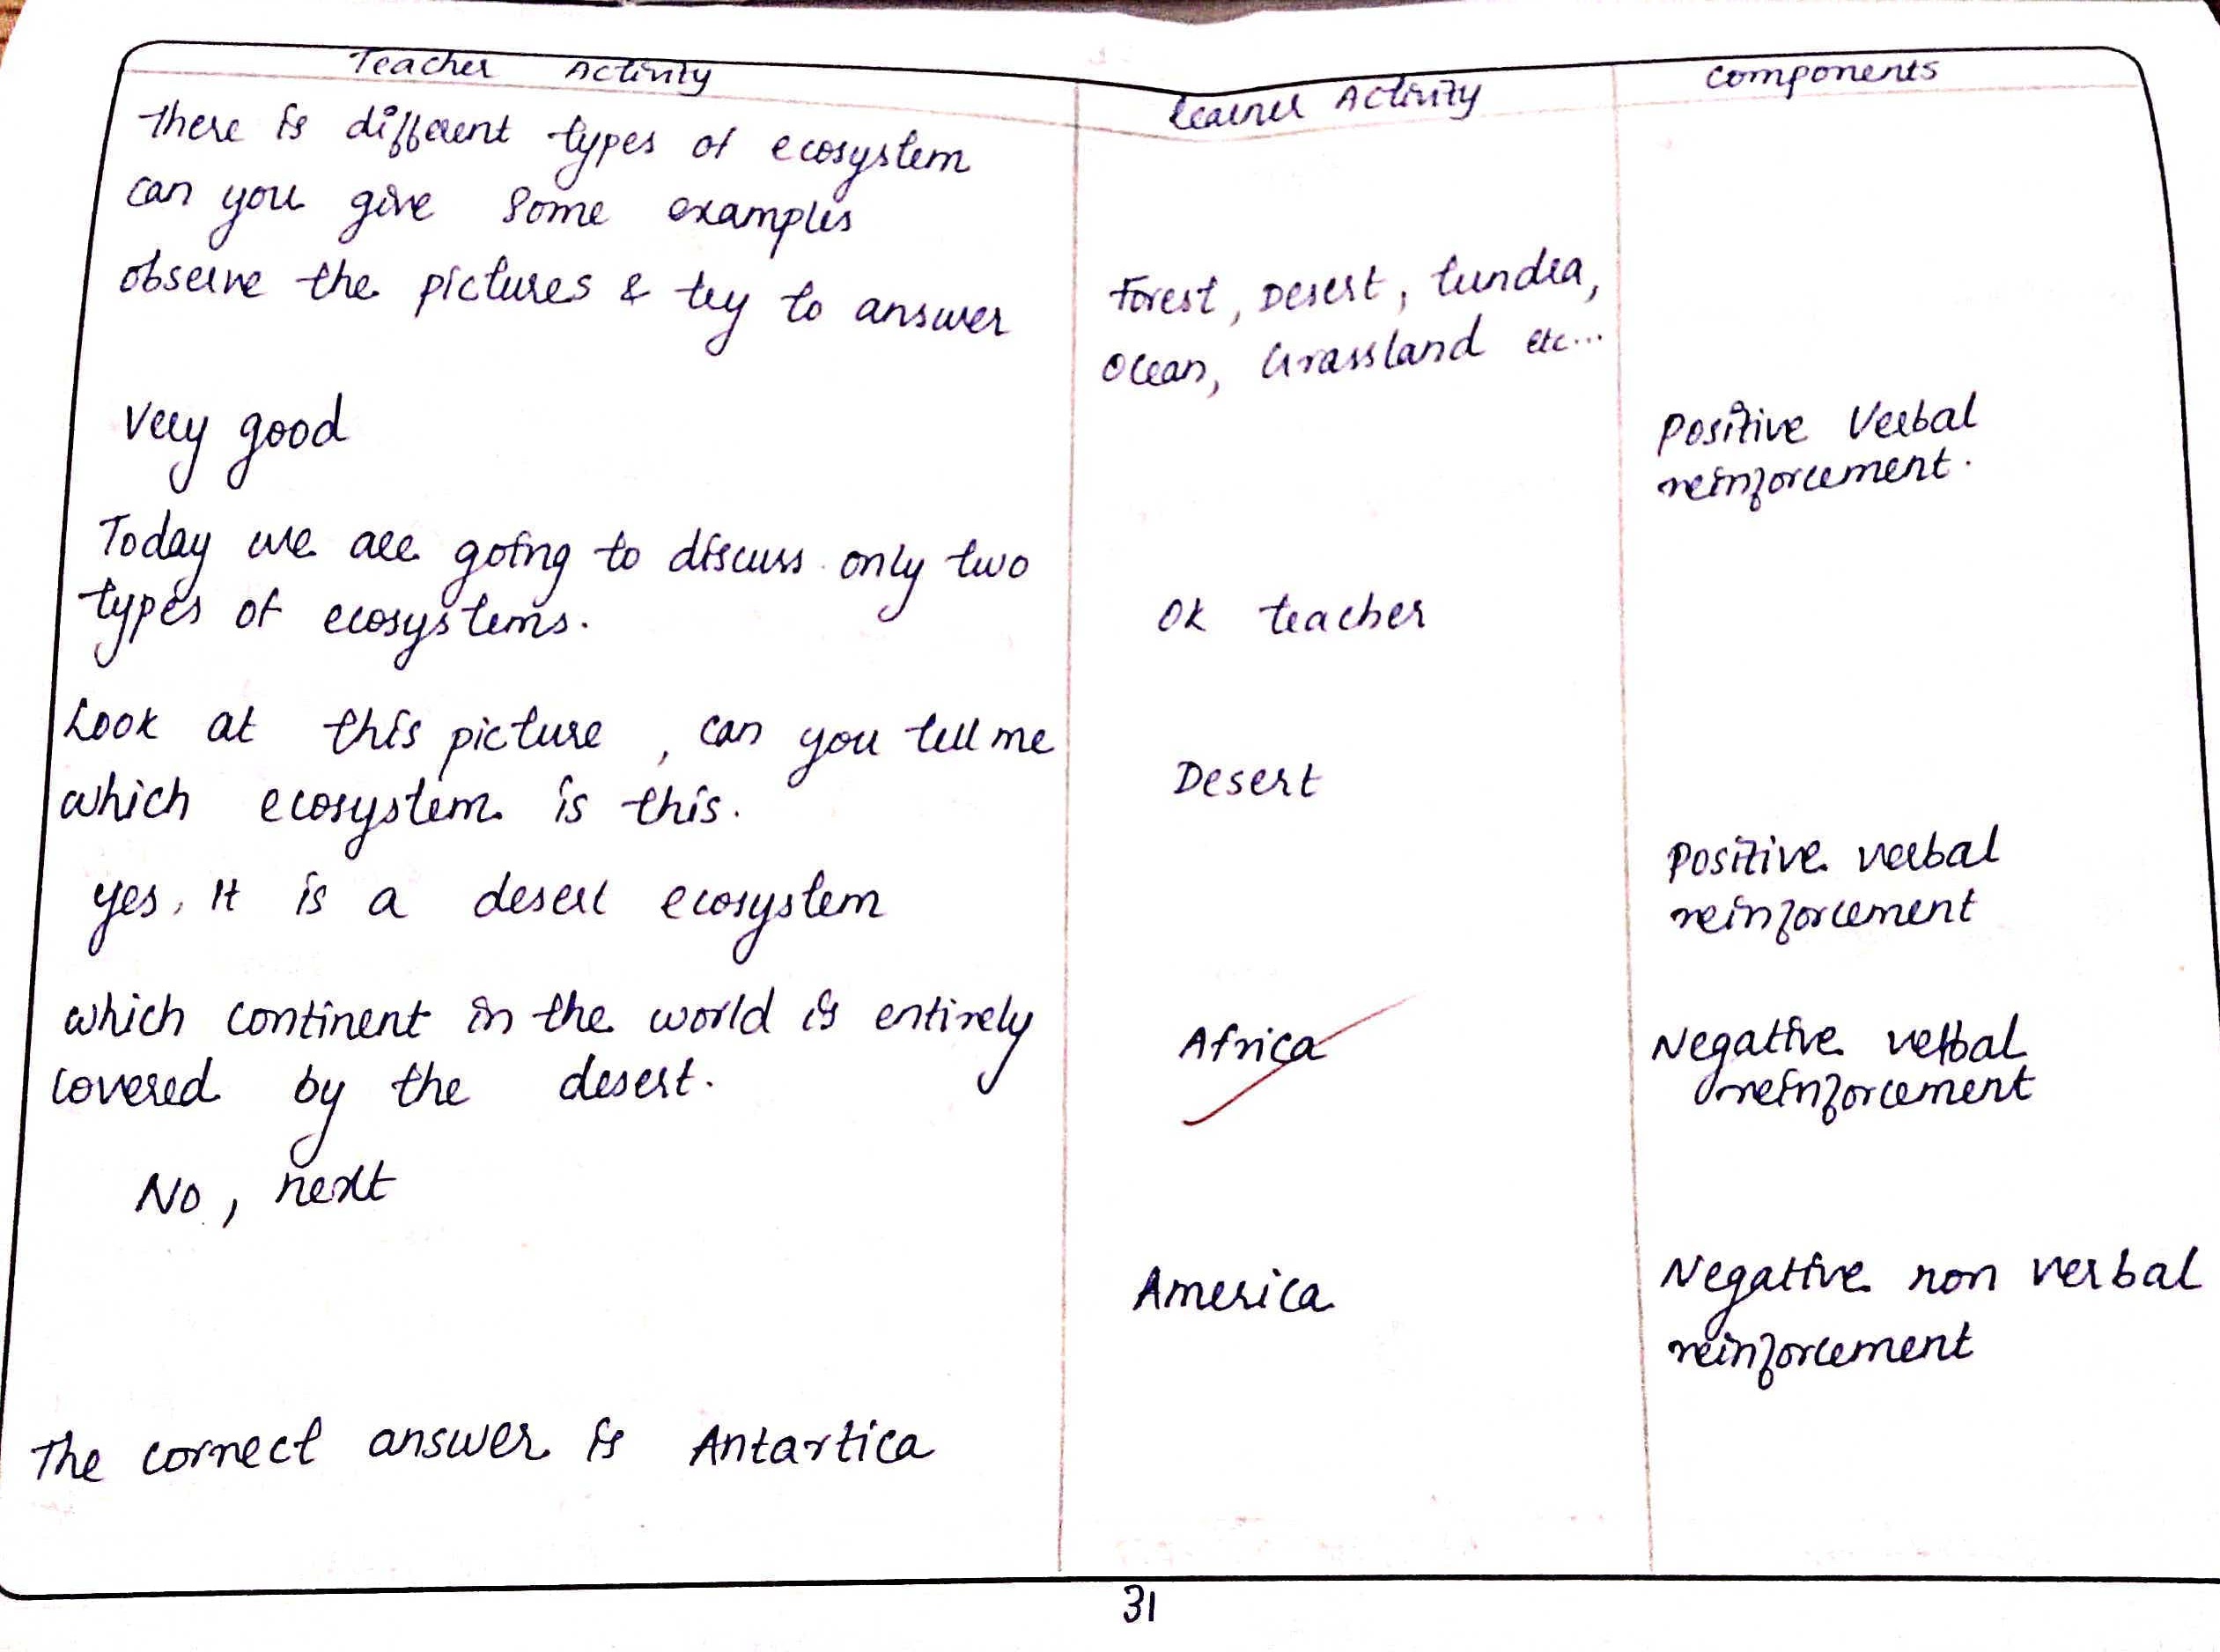 Teacher Activity
Learner Activity
Components
there is different types of ecosystem
can you give some examples
observe the pictures & try to answer
Forest, Desert, tundra,
Ocean, Grassland etc...
Very good
Positive Verbal
reinforcement.
Today we are going to discuss only two
types of ecosystems.
Ok teacher
Look at this picture, can you tell me
which ecosystem is this.
Desert
yes, It is a desert ecosystem
Positive verbal
reinforcement
which continent in the world is entirely
covered by the desert.
Africa
Negative verbal
reinforcement
No, next
America
Negative non verbal
reinforcement
The correct answer is Antartica
31